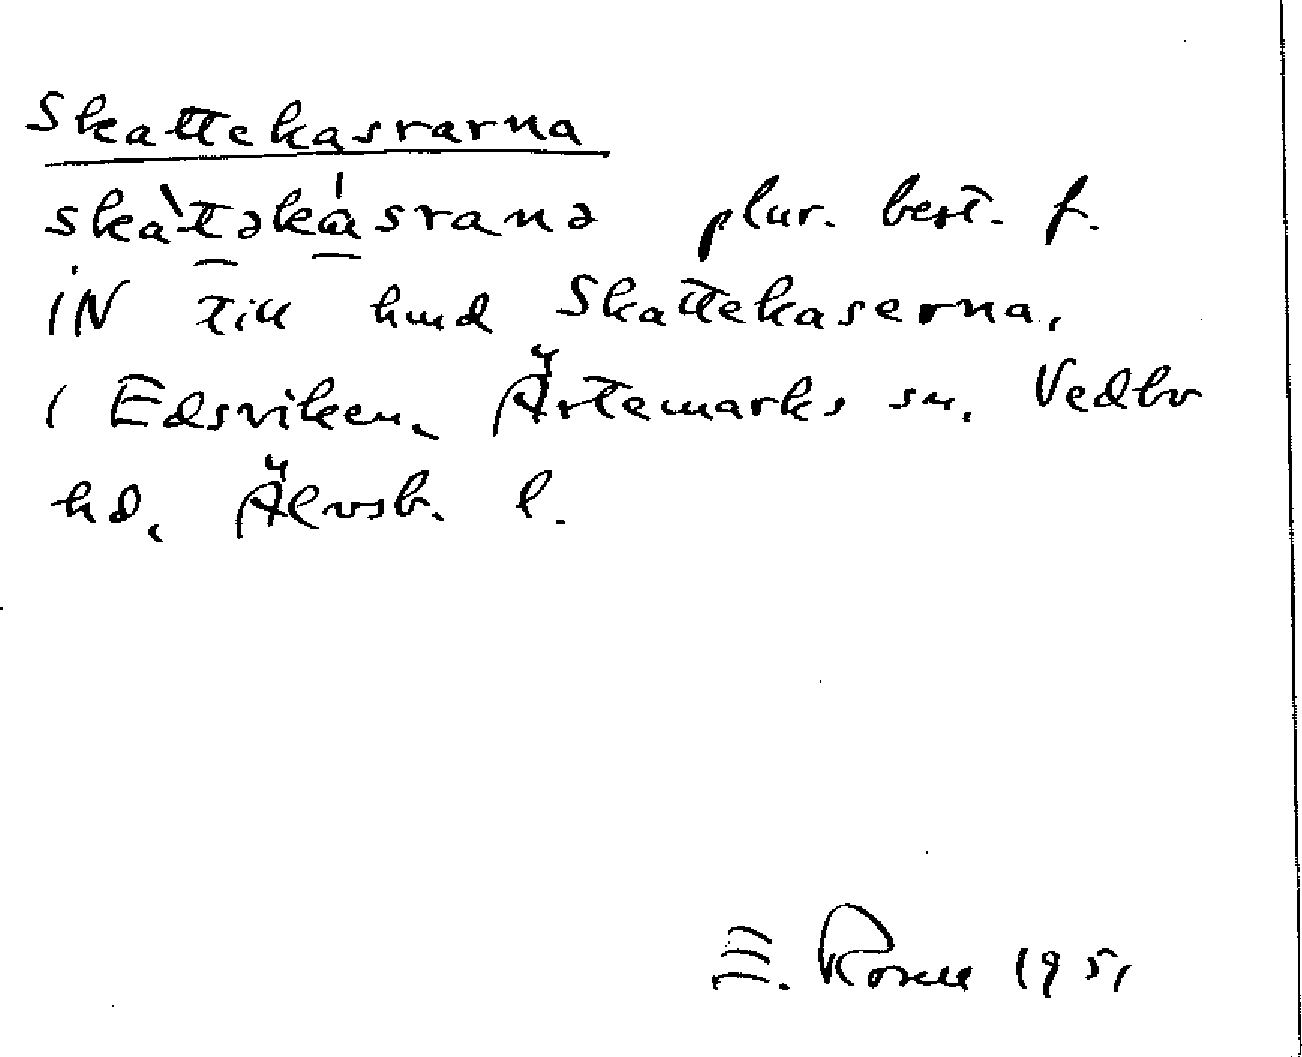 Skattekasrarna
skàt̲əká̲sranə plur. best. f.
IN till hmd Skattekaserna,
i Edsviken, Ärtemarks sn, Vedbo
hd, Älvsb. l.
E. 1951